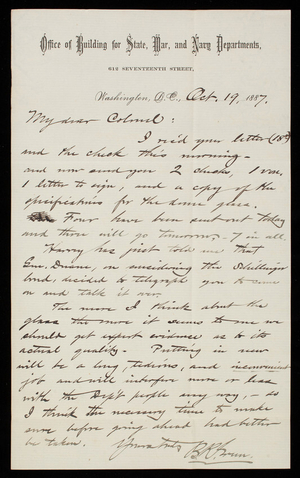 Office of Building for State, War, and Navy Departments,
812 SEVENTEENTH STREET,
Washington, D.C., Oct. 19, 1887.
My dear Colonel:
I rec'd your letter (18th)
and the check this morning—
and now send you 2 checks, 1 vou.
1 letter to sign, and a copy of the
specifications for the dome glass.
Four have been sent out today
and three will go tomorrow – 7 in all.
Harry has just told me that
Gen. Duane, on considering the Schillinger
bond, decided to telegraph you to come
on and talk it over.
The more I think about the
glass the more it seems to me we
should get expert evidence as to its
actual quality. Putting in new
will be a long, tedious, and inconvenient
job and will interfere more or less
with the Dep't people any way, – so
I think the necessary time to make
sure before going ahead had better
be taken. Yours truly
B. R. Green